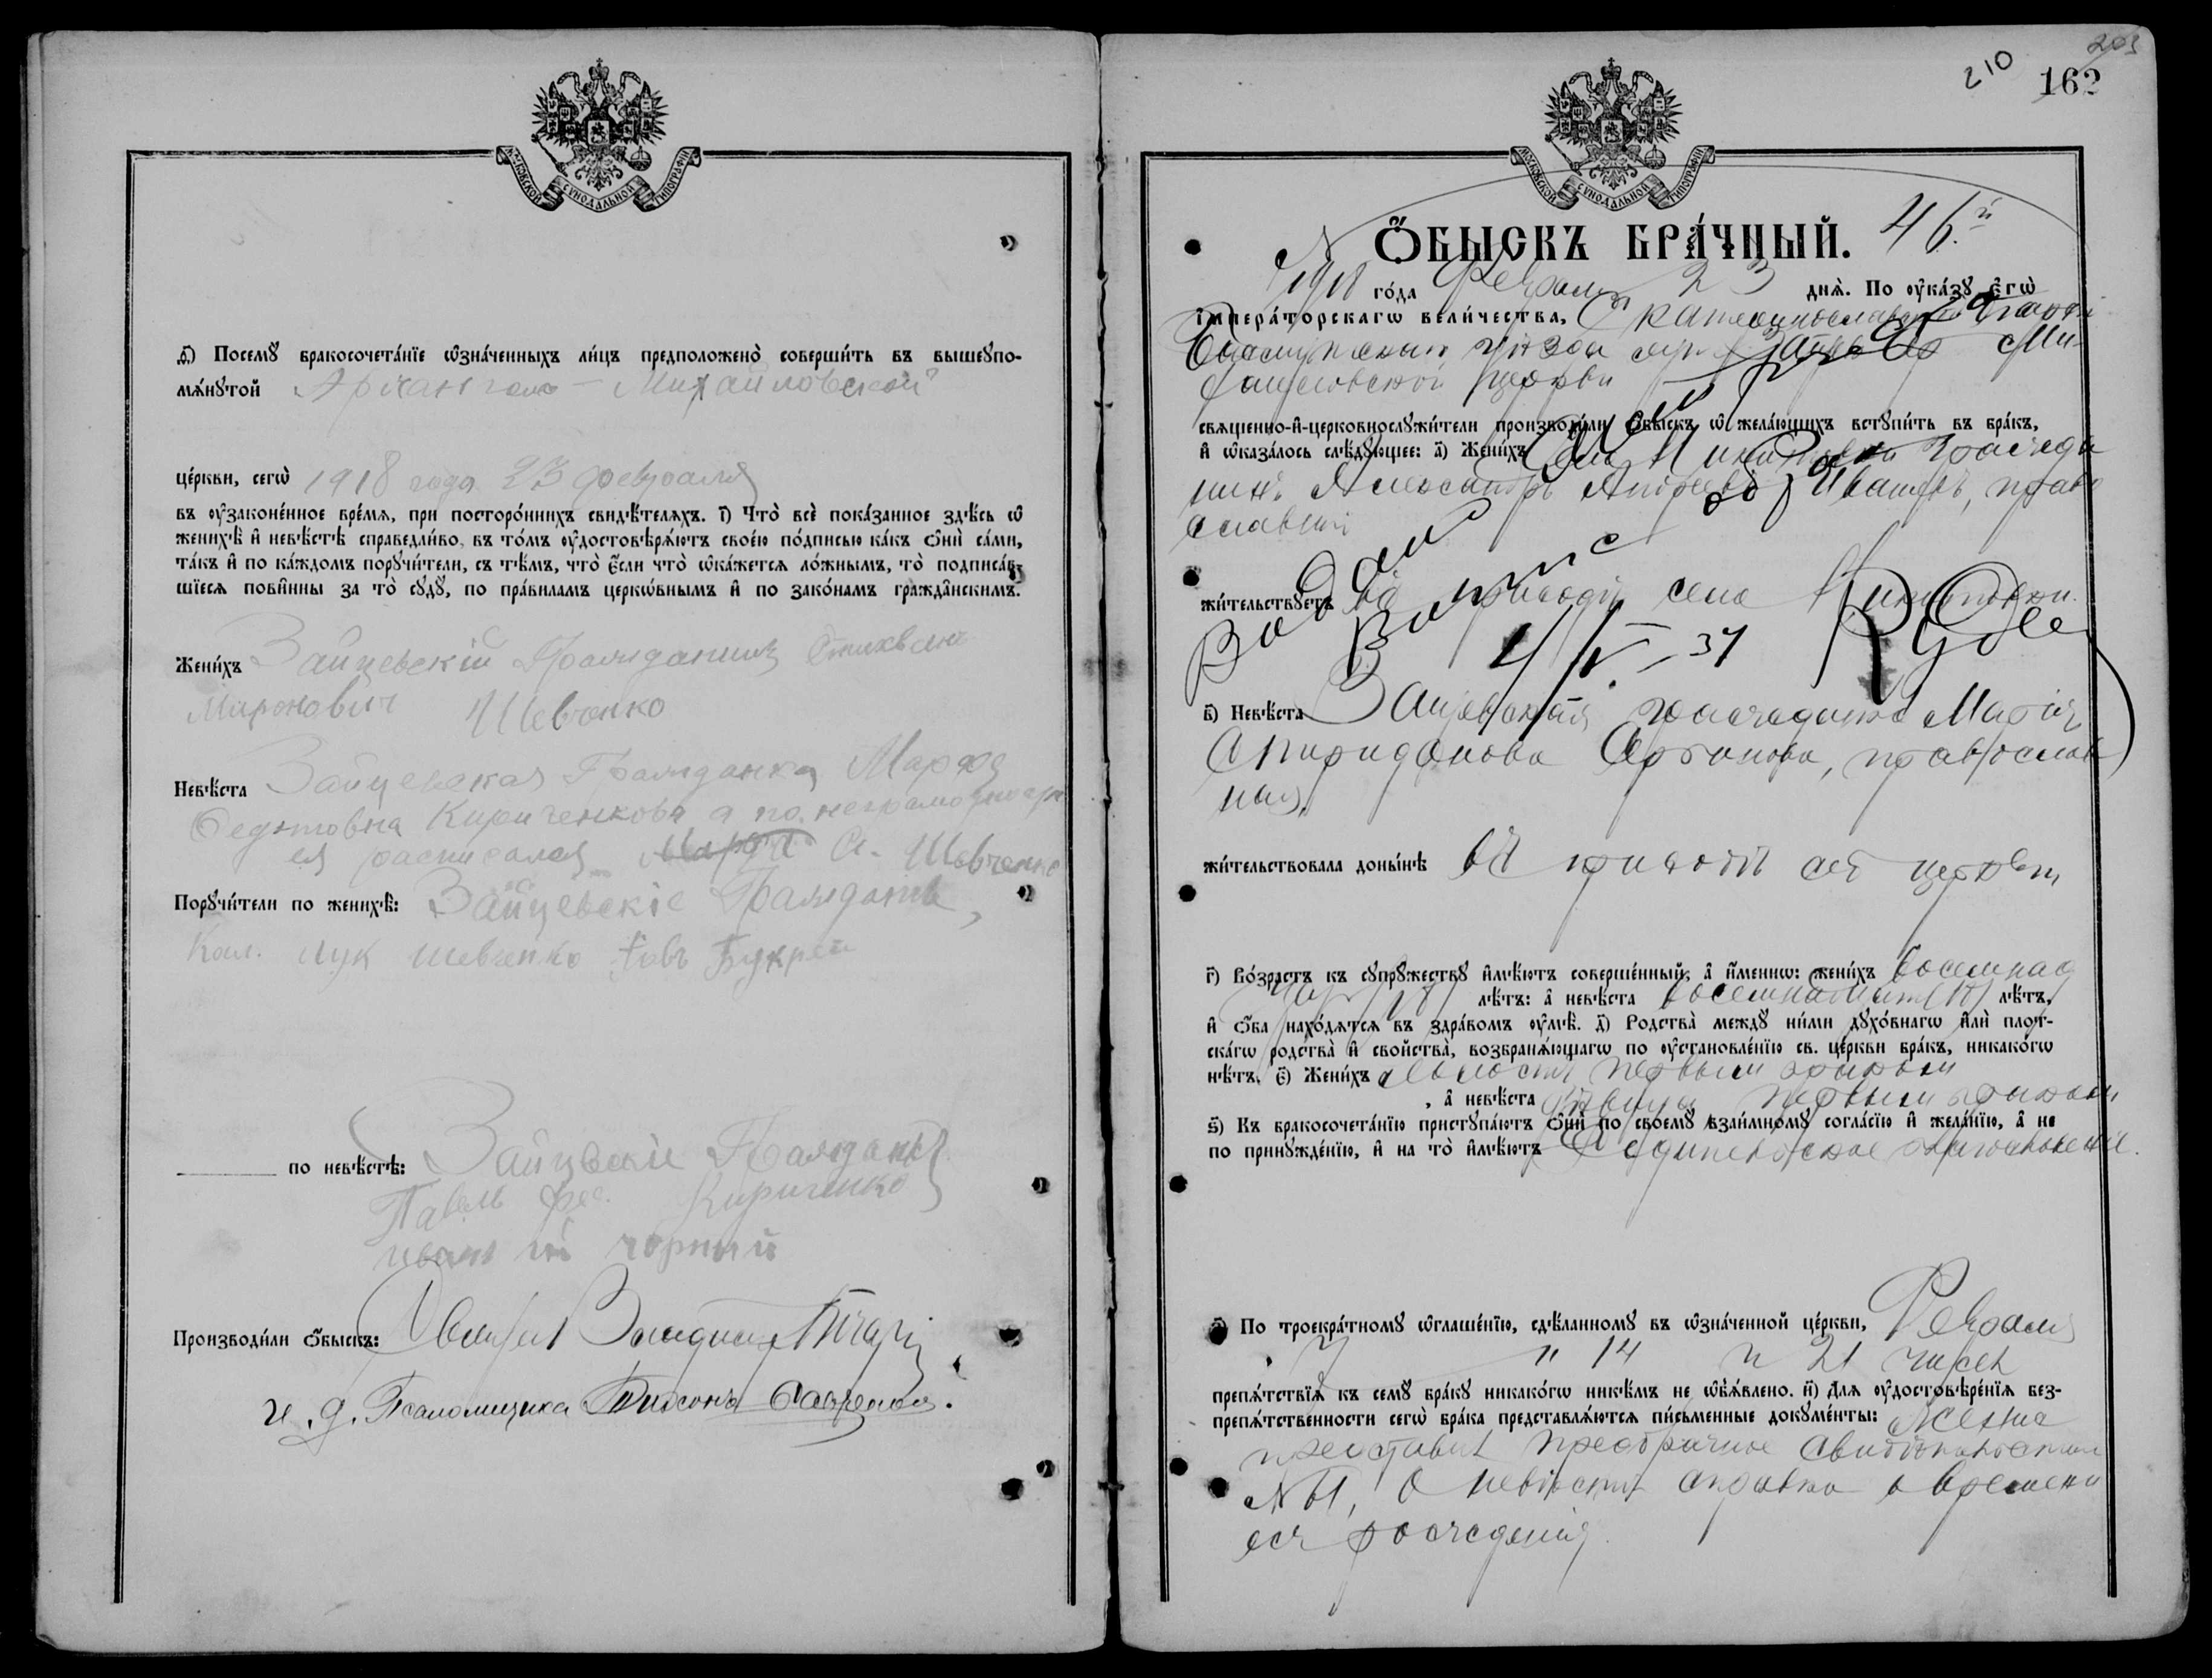 МОСКОВСКОЙ СѴНОДАЛЬНОЙ ТИПОГРАФІИ
д҃) Посемꙋ бракосочета́нїе ѡ҆зна́ченныхъ ли́цъ предположено̀ соверши́ть въ вышеупо-
мѧ́нꙋтой Архангело-Михайловской
це́ркви, сегѡ̀ 1918 года 23 февраля
въ ᲂу҆законе́нное вре́мѧ, при посторо́ннихъ свидѣ́телѧхъ. і҃) Что̀ всѐ пока́занное здѣ́сь ѡ҆
женихѣ̀ и҆ невѣ́стѣ справедли́во, въ то́мъ ᲂу҆достовѣрѧ́ютъ свое́ю по́дписью ка́къ ѻ҆нѝ са́ми,
та́къ и҆ по ка́ждомъ порꙋчи́тели, съ тѣ́мъ, что̀ є҆́сли что̀ ѡ҆ка́жетсѧ ло́жнымъ, то̀ подписа́в-
шїесѧ пови́нны за то̀ сꙋдꙋ̀, по пра́виламъ церкѡ́внымъ и҆ по зако́намъ гражда̑нскимъ.
Жени́хъ Зайцевскій Гражданинъ
Миронович Шевченко
Невѣ́ста Зайцевская Гражданка Марфа
Кириченкова а по неграмотности
ея расписался С. Шевченко
Порꙋчи́тели по женихѣ̀: Зайцевскіе Граждане,
Лук Шевченко
по невѣ́стѣ: Зайцевскіе Граждане
Павелъ Кириченко
иванъ чорный
Производи́ли ѻ҆́быскъ:
и. д. Псаломщика Тихонъ
210 203
162
МОСКОВСКОЙ СѴНОДАЛЬНОЙ ТИПОГРАФІИ
Ѻ҆́БЫСКЪ БРА́ЧНЫЙ. 46й
1918 го́да Февраля 23 днѧ̀. По ᲂу҆ка́зꙋ є҆гѡ̀
і҆мпера́торскагѡ вели́чества, Екатеринославской епархіи
уѣзда села Зайцево Ми-
хайловской церкви
свѧще́нно-и҆-церковнослꙋжи́тели производи́ли ѻ҆́быскъ ѡ҆ жела́ющихъ встꙋпи́ть въ бра́къ,
и҆ ѡ҆каза́лось слѣ́дꙋющее: а҃) Жени́хъ села Никитовки гражда
нинъ Александръ Андреевъ Ивашевъ, право
славный
жи́тельствꙋетъ въ приходѣ села Никитовки.
4/V–37
в҃) Невѣ́ста Зайцевская гражданка Марія
Спиридонова, православ
ная,
жи́тельствовала доны́нѣ въ приходѣ сей церкви
г҃) Во́зрастъ къ сꙋпрꙋ́жествꙋ и҆мѣ́ютъ соверше́нный, а҆ и҆́меннѡ: жени́хъ восемнад
цать 18 лѣ́тъ: а҆ невѣ́ста восемнадцать (18) лѣ́тъ,
и҆ ѻ҆́ба нахо́дѧтсѧ въ здра́вомъ ᲂу҆мѣ̀. д҃) Родства̀ междꙋ ни́ми дꙋхо́внагѡ и҆лѝ плот-
ска́гѡ родства̀ и҆ свойства̀, возбранѧ́ющагѡ по ᲂу҆становле́нїю св. це́ркви бра́къ, никако́гѡ
нѣ́тъ. є҃) Жени́хъ холостъ первымъ бракомъ
, а҆ невѣ́ста дѣвица первымъ бракомъ
ѕ҃) Къ бракосочета́нїю пристꙋпа́ютъ ѻ҆нѝ по своемꙋ̀ взаи́мномꙋ согла́сїю и҆ жела́нїю, а҆ не
по принꙋжде́нїю, и҆ на то̀ и҆мѣ́ютъ родительское благословеніе.
з҃) По троекра́тномꙋ ѡ҆глаше́нїю, сдѣ́ланномꙋ въ ѡ҆зна́ченной це́ркви, Февраля
7 и 14 и 21 чиселъ
препѧ́тствїѧ къ семꙋ̀ бра́кꙋ никако́гѡ никѣ́мъ не ѡ҆б̾ѧ́влено. и҃) Длѧ ᲂу҆достовѣре́нїѧ без-
препѧ́тственности сегѡ̀ бра́ка представлѧ́ютсѧ пи́сьменные докꙋме́нты: Женихъ
представилъ предбрачное свидѣтельство
о невѣстѣ справка о времени
ея рожденія.